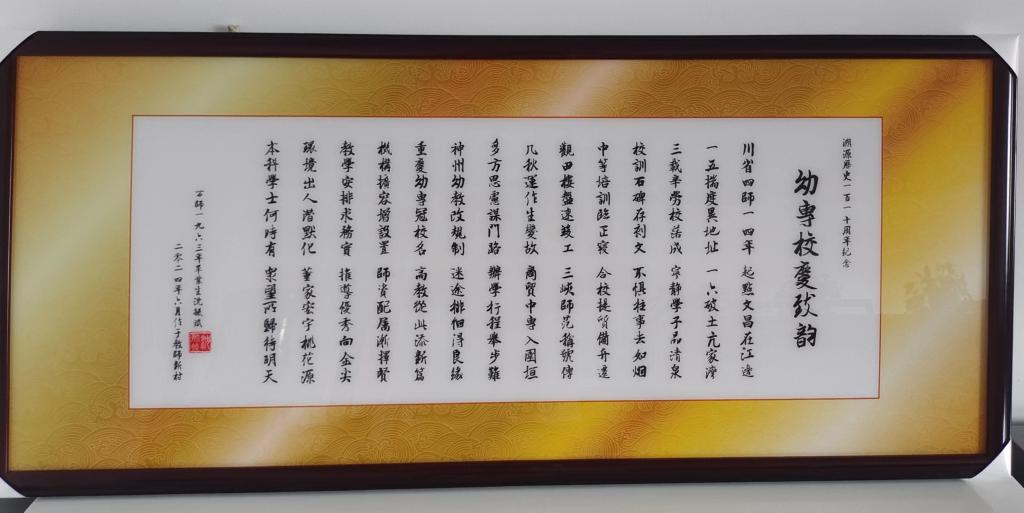 溯源歷史一百一十周年紀念
幼專校慶致韵
川省四師一四年 起點文昌在江邊
一五揣度異地址 一六破土亢家灣
三載辛勞校落成 寧靜學子品清泉
校訓石碑存刻文 不俱往事去如烟
中等培訓臨正寢 合校提質備升遷
觀田樓盤速竣工 三峽師范稱號傳
几秋運作生變故 商貿中專入園垣
多方思慮謀門路 辦學行程舉步難
神州幼教改規制 迷途徘徊得良緣
重慶幼專冠校名 高教從此添新篇
機構擴容增設置 師資配屬漸擇賢
教學安排求務實 推導優秀向金尖
環境出人潛默化 董家宏宇桃花源
本科學士何時有 眾望所歸待明天
万師一九六三年畢業生沈毓斌
二零二四年六月作于教師新村